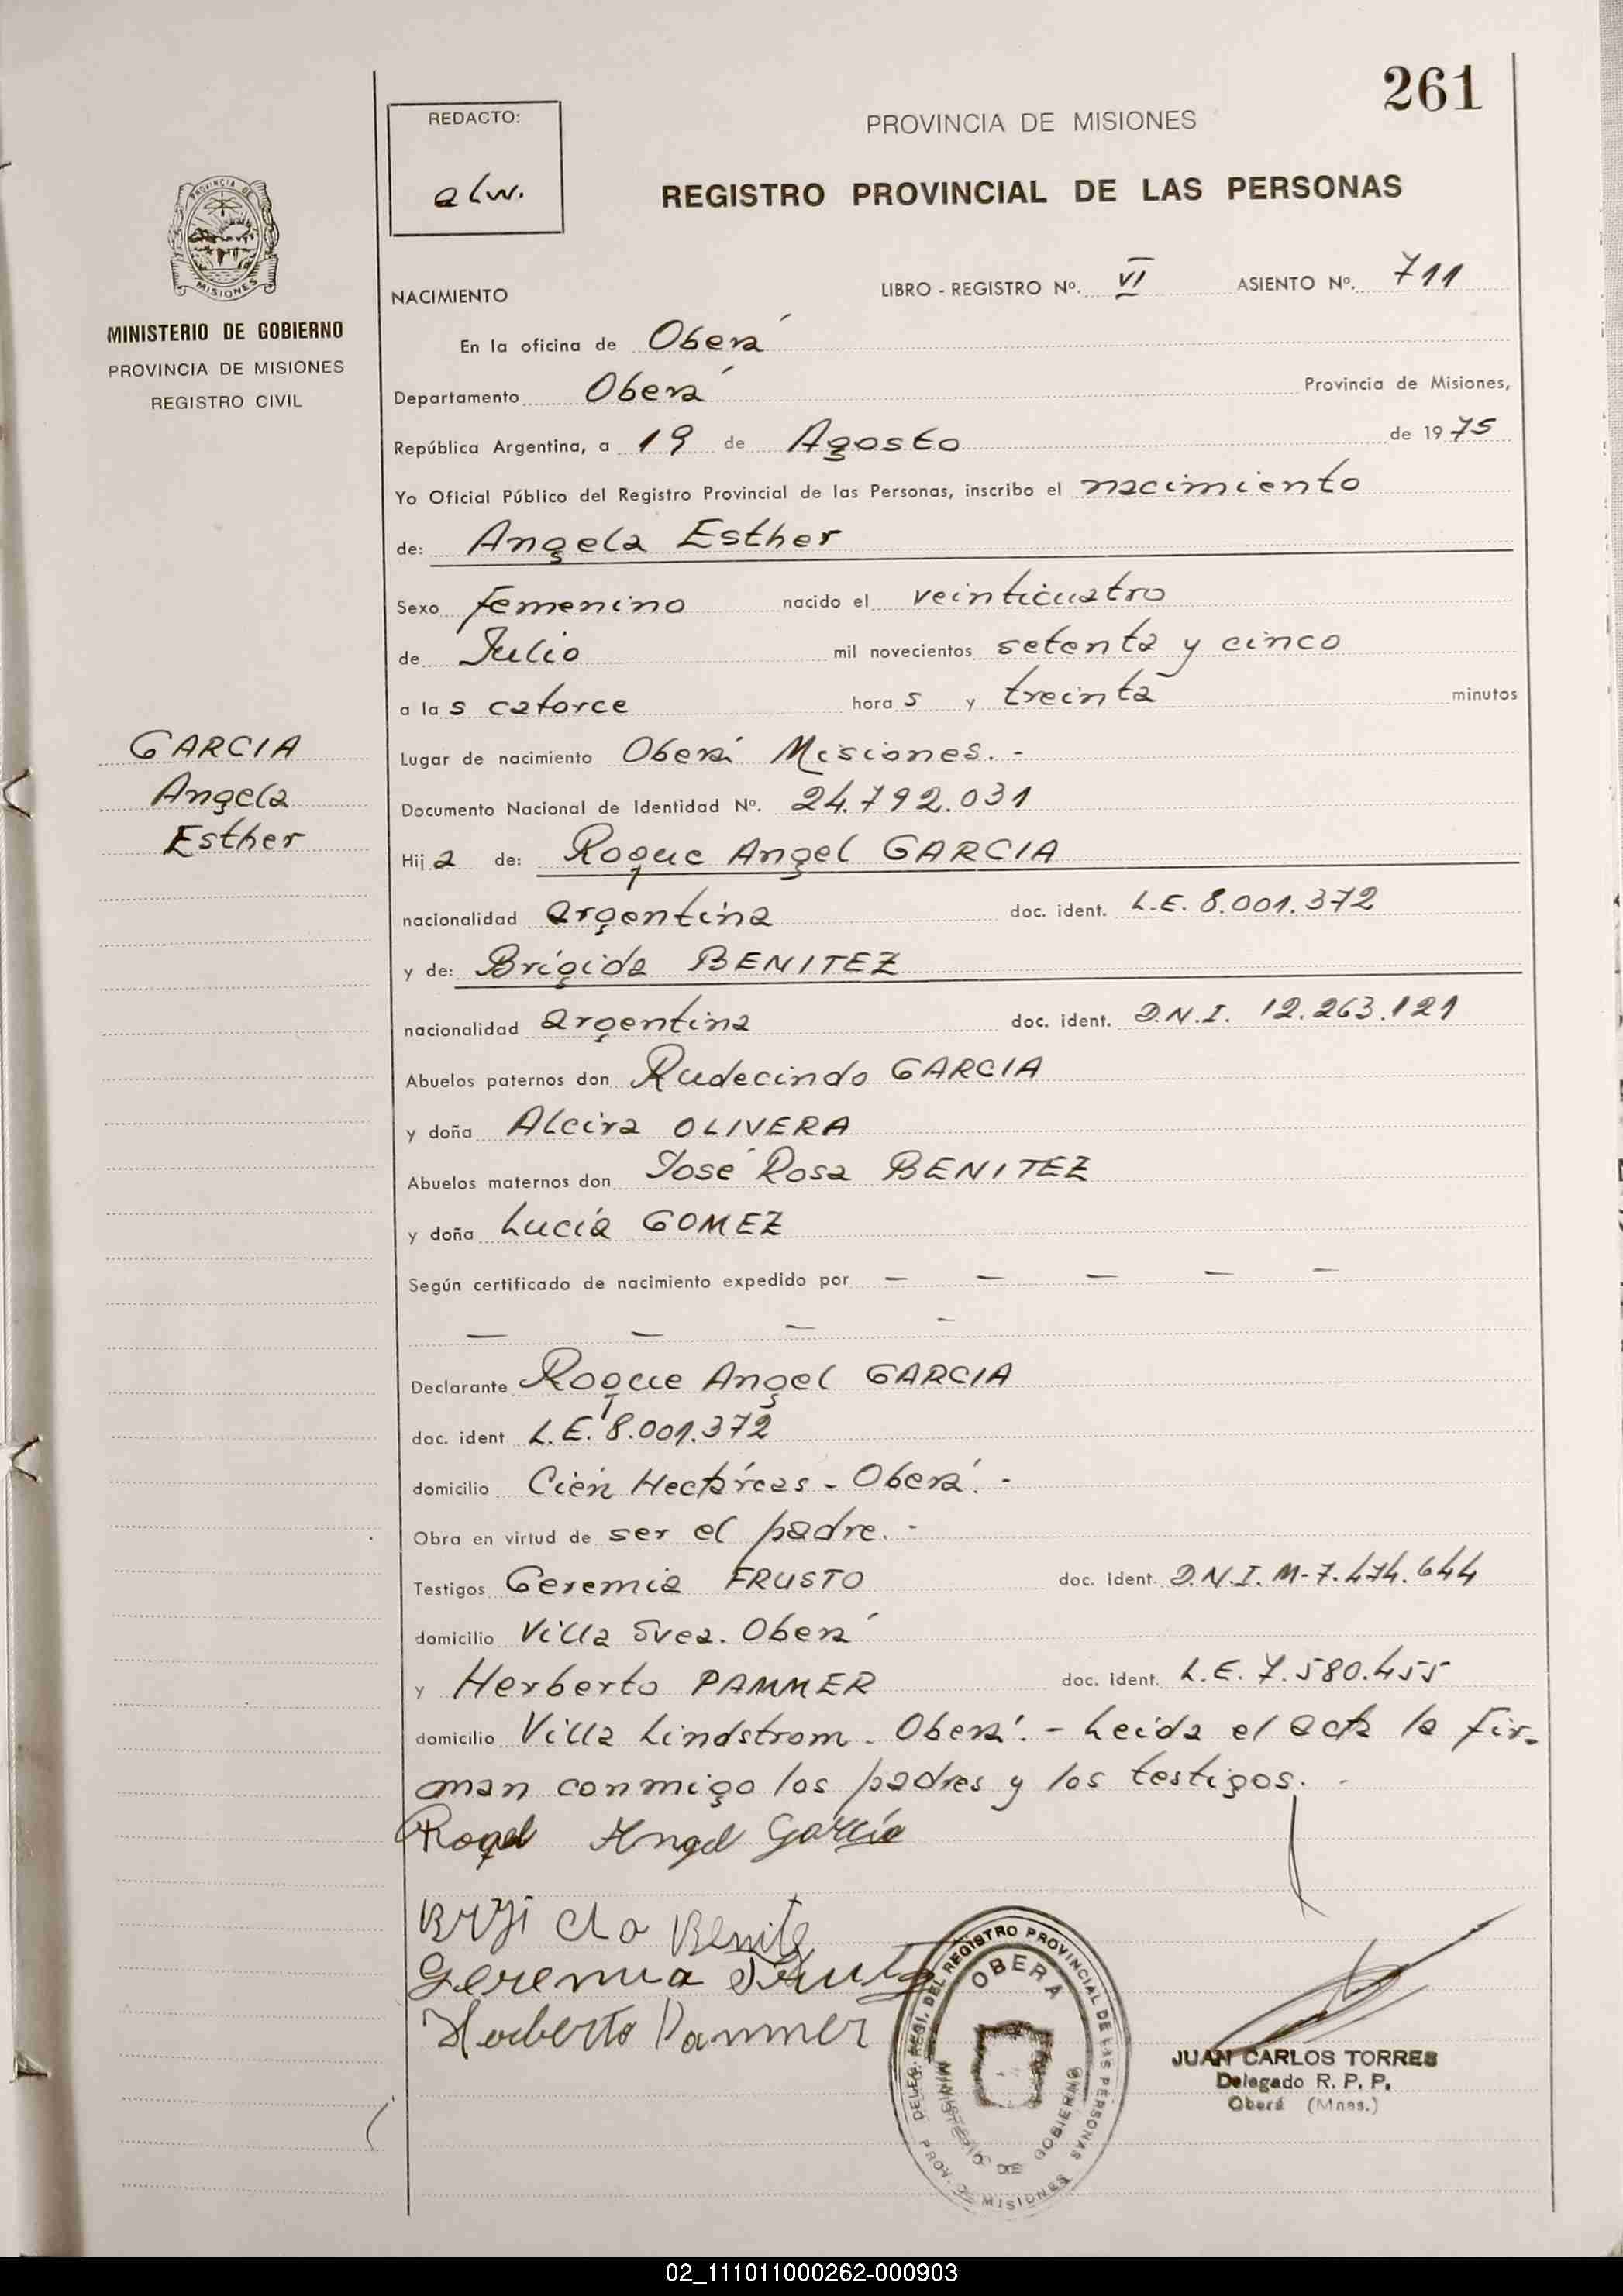 261
REDACTO:
alw.
PROVINCIA DE MISIONES
REGISTRO PROVINCIAL DE LAS PERSONAS
PROVINCIA DE
MISIONES
MINISTERIO DE GOBIERNO
PROVINCIA DE MISIONES
REGISTRO CIVIL
NACIMIENTO LIBRO - REGISTRO Nº. VI ASIENTO Nº. 711
En la oficina de Oberá
Departamento Oberá Provincia de Misiones,
República Argentina, a 19 de Agosto de 1975
Yo Oficial Público del Registro Provincial de las Personas, inscribo el nacimiento
de: Angela Esther
Sexo femenino nacido el veinticuatro
de Julio mil novecientos setenta y cinco
a las catorce horas y treinta minutos
GARCIA
Angela
Esther
Lugar de nacimiento Oberá Misiones. -
Documento Nacional de Identidad Nº. 24.792.031
Hija de: Roque Angel GARCIA
nacionalidad argentina doc. ident. L.E. 8.001.372
y de: Brígida BENITEZ
nacionalidad argentina doc. ident. D.N.I. 12.263.121
Abuelos paternos don Rudecindo GARCIA
y doña Alcira OLIVERA
Abuelos maternos don José Rosa BENITEZ
y doña Lucía GOMEZ
Según certificado de nacimiento expedido por — — — — —
— — — -
Declarante Roque Angel GARCIA
doc. ident L.E. 8.001.372
domicilio Cién Hectáreas - Oberá. -
Obra en virtud de ser el padre. -
Testigos Geremia FRUSTO doc. Ident. D.N.I. M-7.474.644
domicilio Villa Svea. Oberá
y Herberto PAMMER doc. ident. L.E. 7.580.455
domicilio Villa Lindstrom. Oberá. - Leída el acta la fir-
man conmigo los padres y los testigos. -
Roqel Angel García
Brji da Benite
Geremia
Herberto Pammer
DELEG. REGI. DEL REGISTRO PROVINCIAL DE LAS PERSONAS
OBERA
MINISTERIO DE GOBIERNO
PROV. DE MISIONES
JUAN CARLOS TORRES
Delegado R. P. P.
Oberá (Mnes.)
02_111011000262-000903